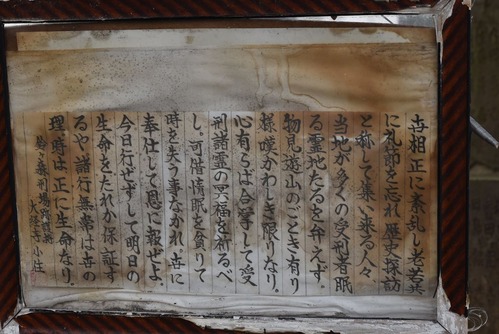 世相正に紊乱し老若共
に礼節を忘れ歴史探訪
と称して襲い来る人々、
当地が多くの受刑者眠
る霊地たるを弁えず。
物見遊山のごとき有り
様嘆かわしき限りなり。
心有らば合掌して受
刑諸霊の冥福を祈るべ
し。可惜惰眠を貪りて
時を失う事なかれ。世に
奉仕して恩に報ぜよ。
今日行ぜずして明日の
生命をたれか保証す
るや諸行無常は世の
理時は正に生命なり。
鈴ヶ森刑場跡
大経寺小住